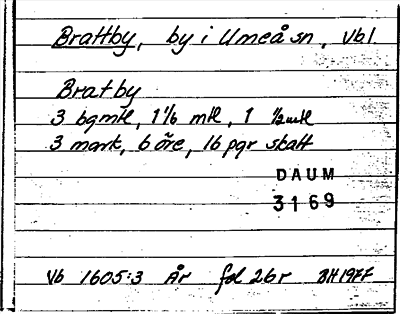 Brattby, by i Umeå sn, Vb1.
Bratby
3 bgmtl, 1 1/6 mtl, 1 1/2 mtl
3 mark, 6 öre, 16 pgr skatt
DAUM
3169
Vb 1605:3 År fol 26r BH 1977